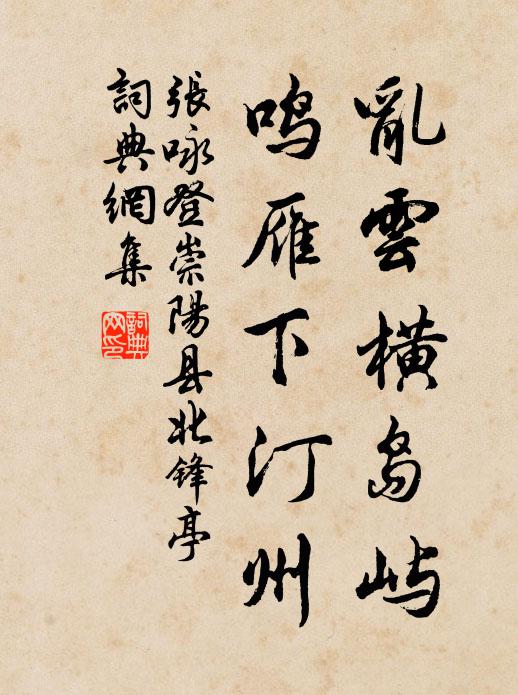 亂雲橫島屿
鸣雁下汀州
張咏登崇陽县北锋亭
詞典網集
詞典网印